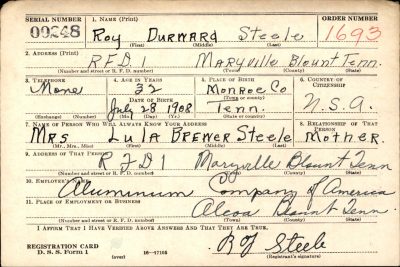 SERIAL NUMBER 1. NAME (Print) ORDER NUMBER
00248 Roy Durward Steele 1693
(First) (Middle) (Last)
2. ADDRESS (Print)
RFD 1 Maryville Blount Tenn.
(Number and street or R. F. D. number) (Town) (County) (State)
3. TELEPHONE 4. AGE IN YEARS 5. PLACE OF BIRTH 6. COUNTRY OF CITIZENSHIP
None 32 Monroe Co
DATE OF BIRTH (Town or county)
July 28 1908 Tenn. U.S.A.
(Exchange) (Number) (Mo.) (Day) (Yr.) (State or country)
7. NAME OF PERSON WHO WILL ALWAYS KNOW YOUR ADDRESS 8. RELATIONSHIP OF THAT PERSON
Mrs Lula Brewer Steele Mother.
(Mr., Mrs., Miss) (First) (Middle) (Last)
9. ADDRESS OF THAT PERSON
RFD1 Maryville Blount Tenn
(Number and street or R. F. D. number) (Town) (County) (State)
10. EMPLOYER'S NAME
Aluminum Company of America
11. PLACE OF EMPLOYMENT OR BUSINESS
Alcoa Blount Tenn
(Number and street or R. F. D. number) (Town) (County) (State)
I AFFIRM THAT I HAVE VERIFIED ABOVE ANSWERS AND THAT THEY ARE TRUE.
REGISTRATION CARD
D. S. S. Form 1 (over) 16-17105 Steele
(Registrant's signature)